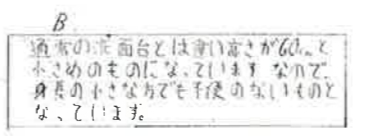 B
通常の洗面台とは違い高さが60cmと
小さめのものになっています なので、
身長の小さな方でも不便のないものと
なっています。